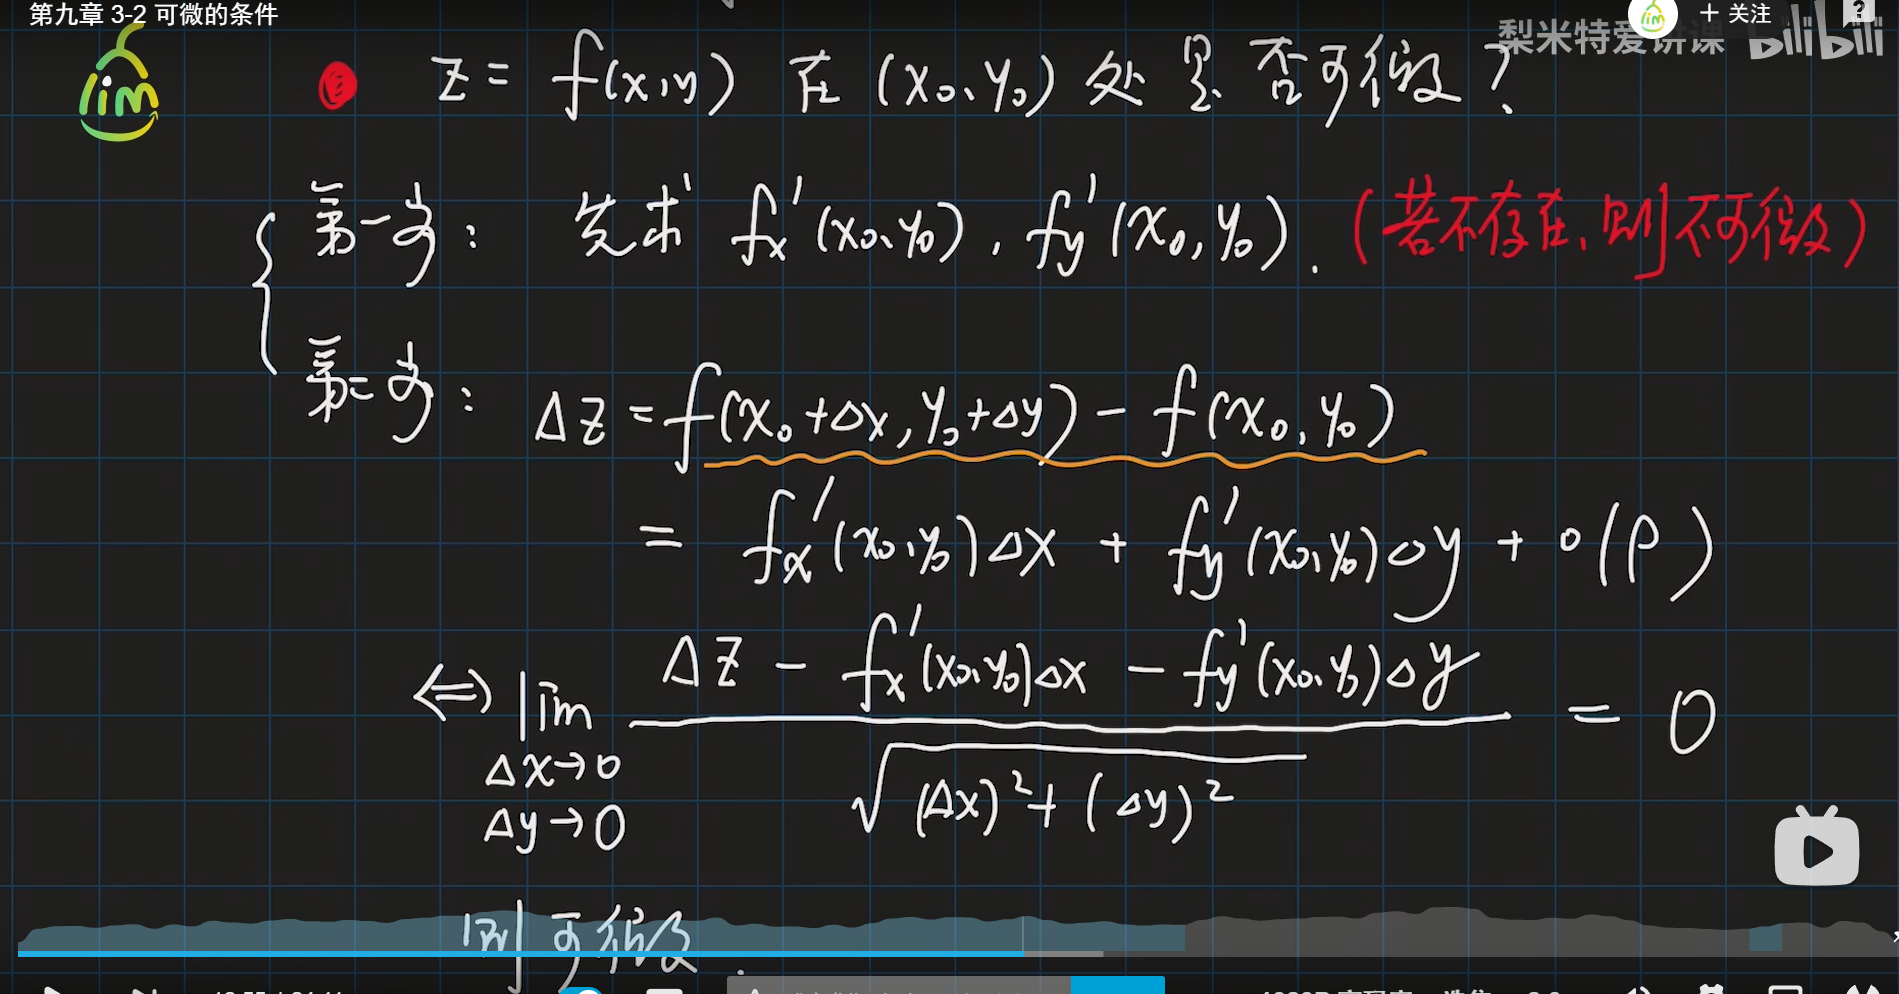 第九章 3-2 可微的条件
+ 关注
梨米特爱讲课 bilibili
lim
z = f(x,y) 在 (x₀,y₀) 处是否可微?
第一步: 先求 fx'(x₀,y₀), fy'(x₀,y₀). (若不存在,则不可微)
第二步: Δz = f(x₀+Δx, y₀+Δy) - f(x₀,y₀)
= fx'(x₀,y₀)Δx + fy'(x₀,y₀)Δy + o(ρ)
⇔ lim Δx→0 Δy→0 (Δz - fx'(x₀,y₀)Δx - fy'(x₀,y₀)Δy) / √((Δx)²+(Δy)²) = 0
则可微.